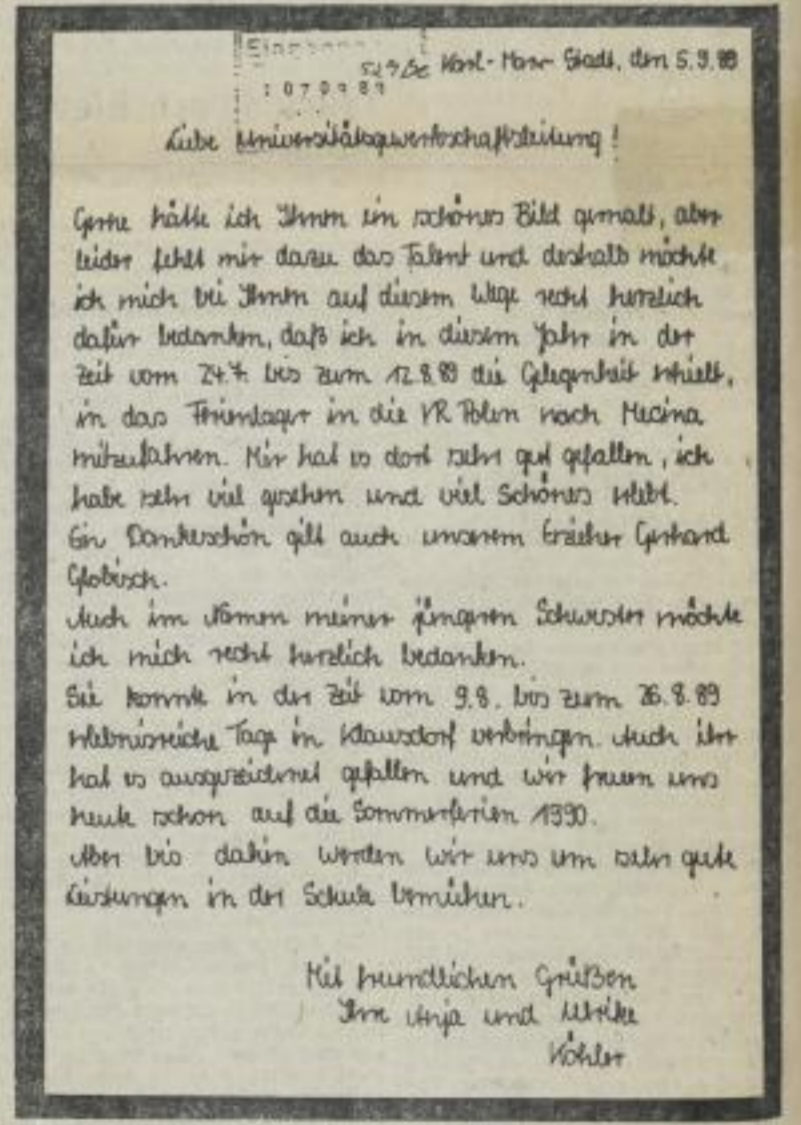 Eingegangen
529/Be Karl-Marx-Stadt, den 5.9.89
070989
Liebe Universitätsgewerkschaftsleitung!
Gerne hätte ich Ihnen ein schönes Bild gemalt, aber
leider fehlt mir dazu das Talent und deshalb möchte
ich mich bei Ihnen auf diesem Wege recht herzlich
dafür bedanken, daß ich in diesem Jahr in der
Zeit vom 24.7. bis zum 12.8.89 die Gelegenheit erhielt,
in das Ferienlager in die VR Polen nach Mecina
mitzufahren. Mir hat es dort sehr gut gefallen, ich
habe sehr viel gesehen und viel Schönes erlebt.
Ein Dankeschön gilt auch unserem Erzieher Gerhard
Globisch.
Auch im Namen meiner jüngeren Schwester möchte
ich mich recht herzlich bedanken.
Sie konnte in der Zeit vom 9.8. bis zum 26.8.89
erlebnisreiche Tage in Klausdorf verbringen. Auch ihr
hat es ausgezeichnet gefallen und wir freuen uns
heute schon auf die Sommerferien 1990.
Aber bis dahin werden wir uns um sehr gute
Leistungen in der Schule bemühen.
Mit freundlichen Grüßen
Ihre Anja und Ulrike
Köhler